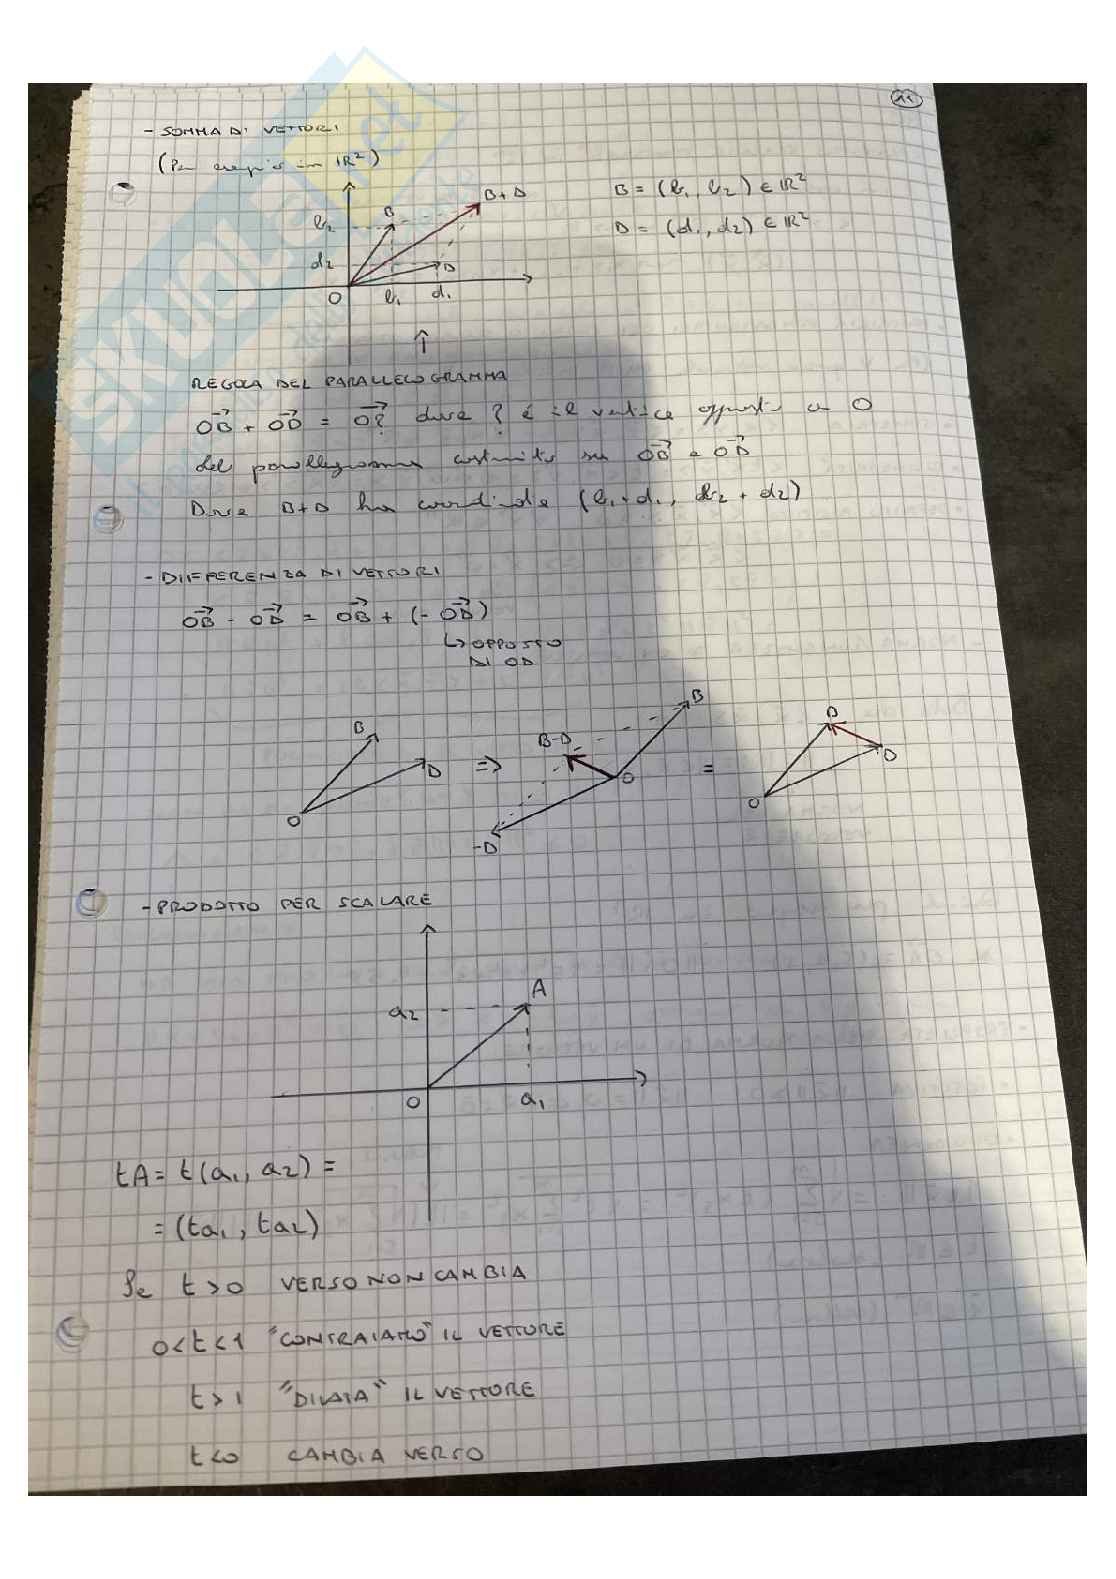 11
- SOMMA DI VETTORI
(Per esempio in ℝ²)
B = (b₁, b₂) ∈ ℝ²
D = (d₁, d₂) ∈ ℝ²
B+D
b₂ B
d₂ D
O b₁ d₁
↑
REGOLA DEL PARALLELOGRAMMA
OB⃗ + OD⃗ = O?⃗ dove ? è il vertice opposto a O
del parallelogramma costruito su OB⃗ e OD⃗
Dove B+D ha coordinate (b₁+d₁, b₂+d₂)
- DIFFERENZA DI VETTORI
OB⃗ - OD⃗ = OB⃗ + (-OD⃗)
↳ OPPOSTO
DI OD
B D O
⇒
B-D B O -D
=
B D O
- PRODOTTO PER SCALARE
a₂ A
O a₁
tA = t(a₁, a₂) =
= (ta₁, ta₂)
Se t > 0 VERSO NON CAMBIA
0<t<1 "CONTRAIAMO" IL VETTORE
t > 1 "DILATA" IL VETTORE
t<0 CAMBIA VERSO
SKUOLA.net